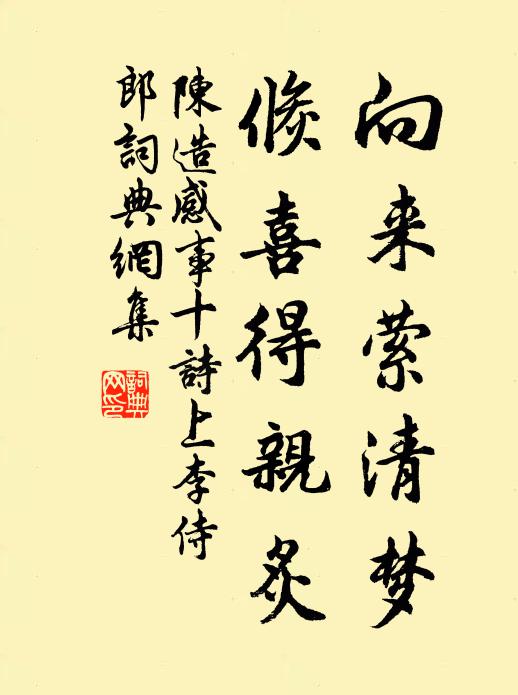 向来萦清梦
倏喜得親炙
陳造感事十詩上李侍
郎詞典網集
詞典
网印